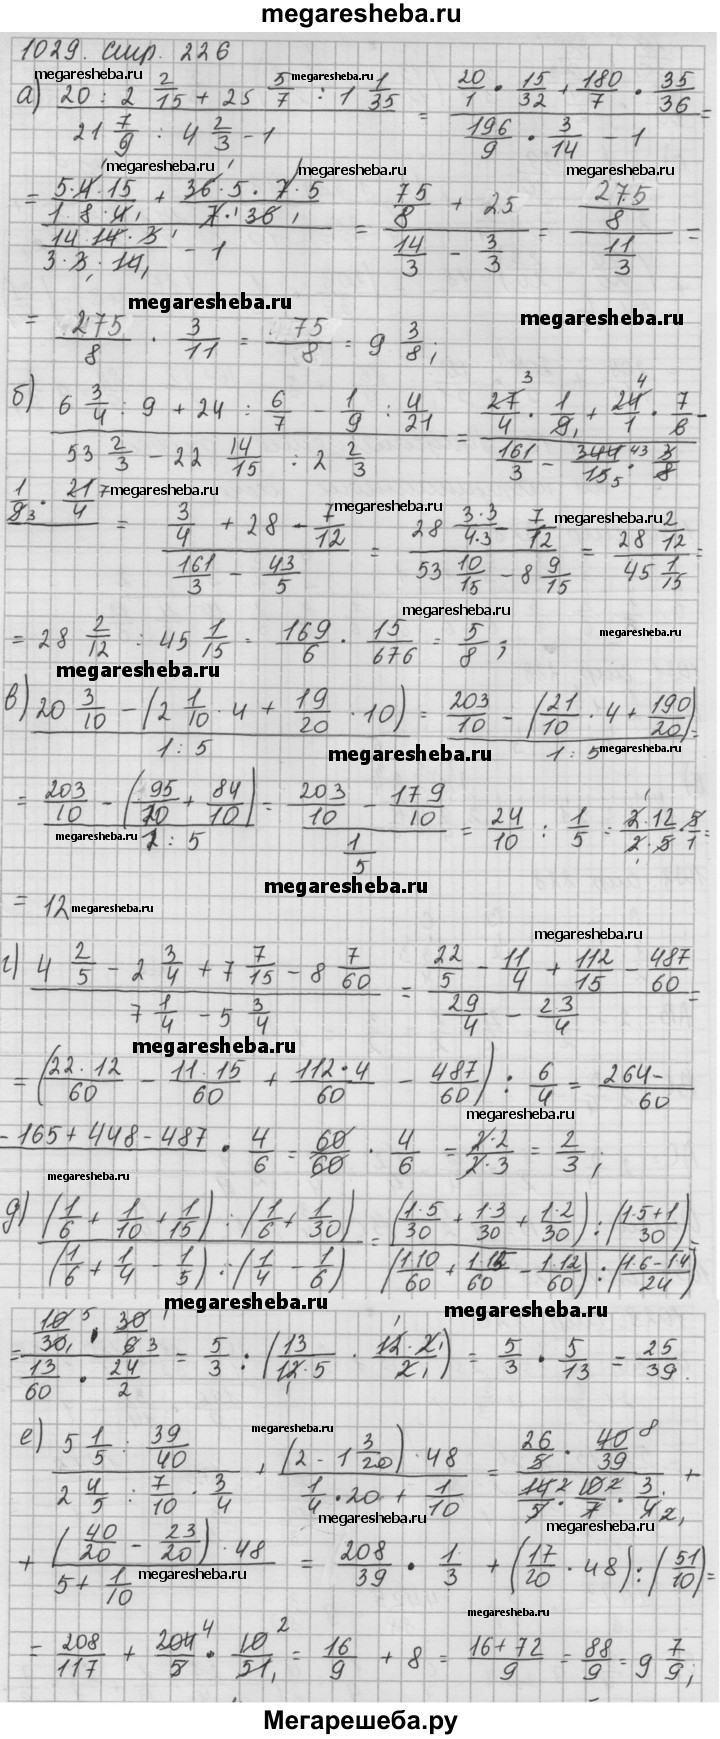 megaresheba.ru
1029. стр. 226
megaresheba.ru megaresheba.ru
а) (20 : 2 2/15 + 25 5/7 : 1 1/35) / (21 7/9 : 4 2/3 - 1) = (20/1 · 15/32 + 180/7 · 35/36) / (196/9 · 3/14 - 1) =
megaresheba.ru megaresheba.ru megaresheba.ru
= ((5·4·15)/(1·8·4) + (36·5·7·5)/(7·36)) / ((14·14·3)/(3·3·14) - 1) = (75/8 + 25) / (14/3 - 3/3) = (275/8) / (11/3) =
megaresheba.ru megaresheba.ru
= 275/8 · 3/11 = 75/8 = 9 3/8;
б) (6 3/4 : 9 + 24 : 6/7 - 1/9 : 4/21) / (53 2/3 - 22 14/15 : 2 2/3) = (27/4 · 1/9 + 24/1 · 7/6 -
/ (161/3 - 344/15 · 3/8)
1/9 · 21/4 = (3/4 + 28 - 7/12) / (161/3 - 43/5) = (28 3·3/4·3 - 7/12) / (53 10/15 - 8 9/15) = (28 2/12) / (45 1/15) =
megaresheba.ru megaresheba.ru megaresheba.ru
megaresheba.ru megaresheba.ru
= 28 2/12 : 45 1/15 = 169/6 · 15/676 = 5/8;
megaresheba.ru
в) (20 3/10 - (2 1/10 · 4 + 19/20 · 10)) / (1 : 5) = (203/10 - (21/10 · 4 + 190/20)) / (1 : 5) =
megaresheba.ru megaresheba.ru
= (203/10 - (95/10 + 84/10)) / (1 : 5) = (203/10 - 179/10) / (1/5) = 24/10 : 1/5 = (2·12)/(2·5) · 5/1 =
megaresheba.ru megaresheba.ru
= 12
megaresheba.ru megaresheba.ru
г) (4 2/5 - 2 3/4 + 7 7/15 - 8 7/60) / (7 1/4 - 5 3/4) = (22/5 - 11/4 + 112/15 - 487/60) / (29/4 - 23/4) =
megaresheba.ru
= (22·12/60 - 11·15/60 + 112·4/60 - 487/60) : 6/4 = 264-/60
megaresheba.ru
-165+448-487 · 4/6 = 60/60 · 4/6 = 2·2/2·3 = 2/3;
megaresheba.ru
д) ((1/6 + 1/10 + 1/15) : (1/6 + 1/30)) / ((1/6 + 1/4 - 1/5) : (1/4 - 1/6)) = ((1·5/30 + 1·3/30 + 1·2/30) : (1·5+1/30)) / ((1·10/60 + 1·15/60 - 1·12/60) : (1·6-1·4/24)) =
megaresheba.ru megaresheba.ru
= (10/30 · 30/6) / (13/60 · 24/2) = 5/3 : (13/12·5 · 12·2/2) = 5/3 · 5/13 = 25/39.
megaresheba.ru
е) (5 1/5 : 39/40) / (2 4/5 : 7/10 · 3/4) + ((2 - 1 3/20) · 48) / (1/4 · 20 + 1/10) = (26/5 · 40/39) / (14/5 · 10/7 · 3/4) +
megaresheba.ru megaresheba.ru
+ ((40/20 - 23/20) · 48) / (5 + 1/10) = 208/39 · 1/3 + (17/20 · 48) : (51/10) =
megaresheba.ru
megaresheba.ru
= 208/117 + 204/5 · 10/51 = 16/9 + 8 = 16+72/9 = 88/9 = 9 7/9;
Мегарешеба.ру